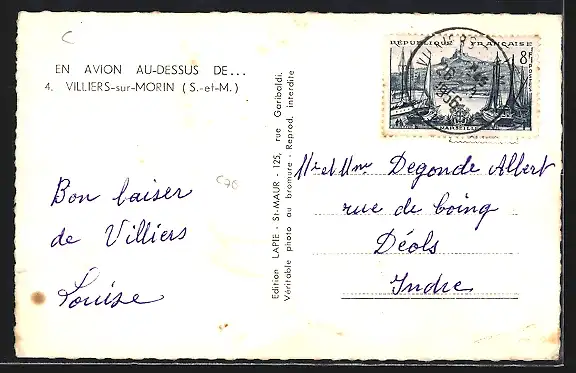 C
EN AVION AU-DESSUS DE...
4. VILLIERS-sur-MORIN (S.-et-M.)
Bon baiser
de Villiers
Louise
C70
Edition LAPIE - St-MAUR - 125, rue Garibaldi.
Véritable photo au bromure - Reprod. interdite
RÉPUBLIQUE FRANÇAISE
8F
POSTES
MARSEILLE
VILLIERS
1956
Mr et Mme Degonde Albert
rue de boing
Déols
Indre